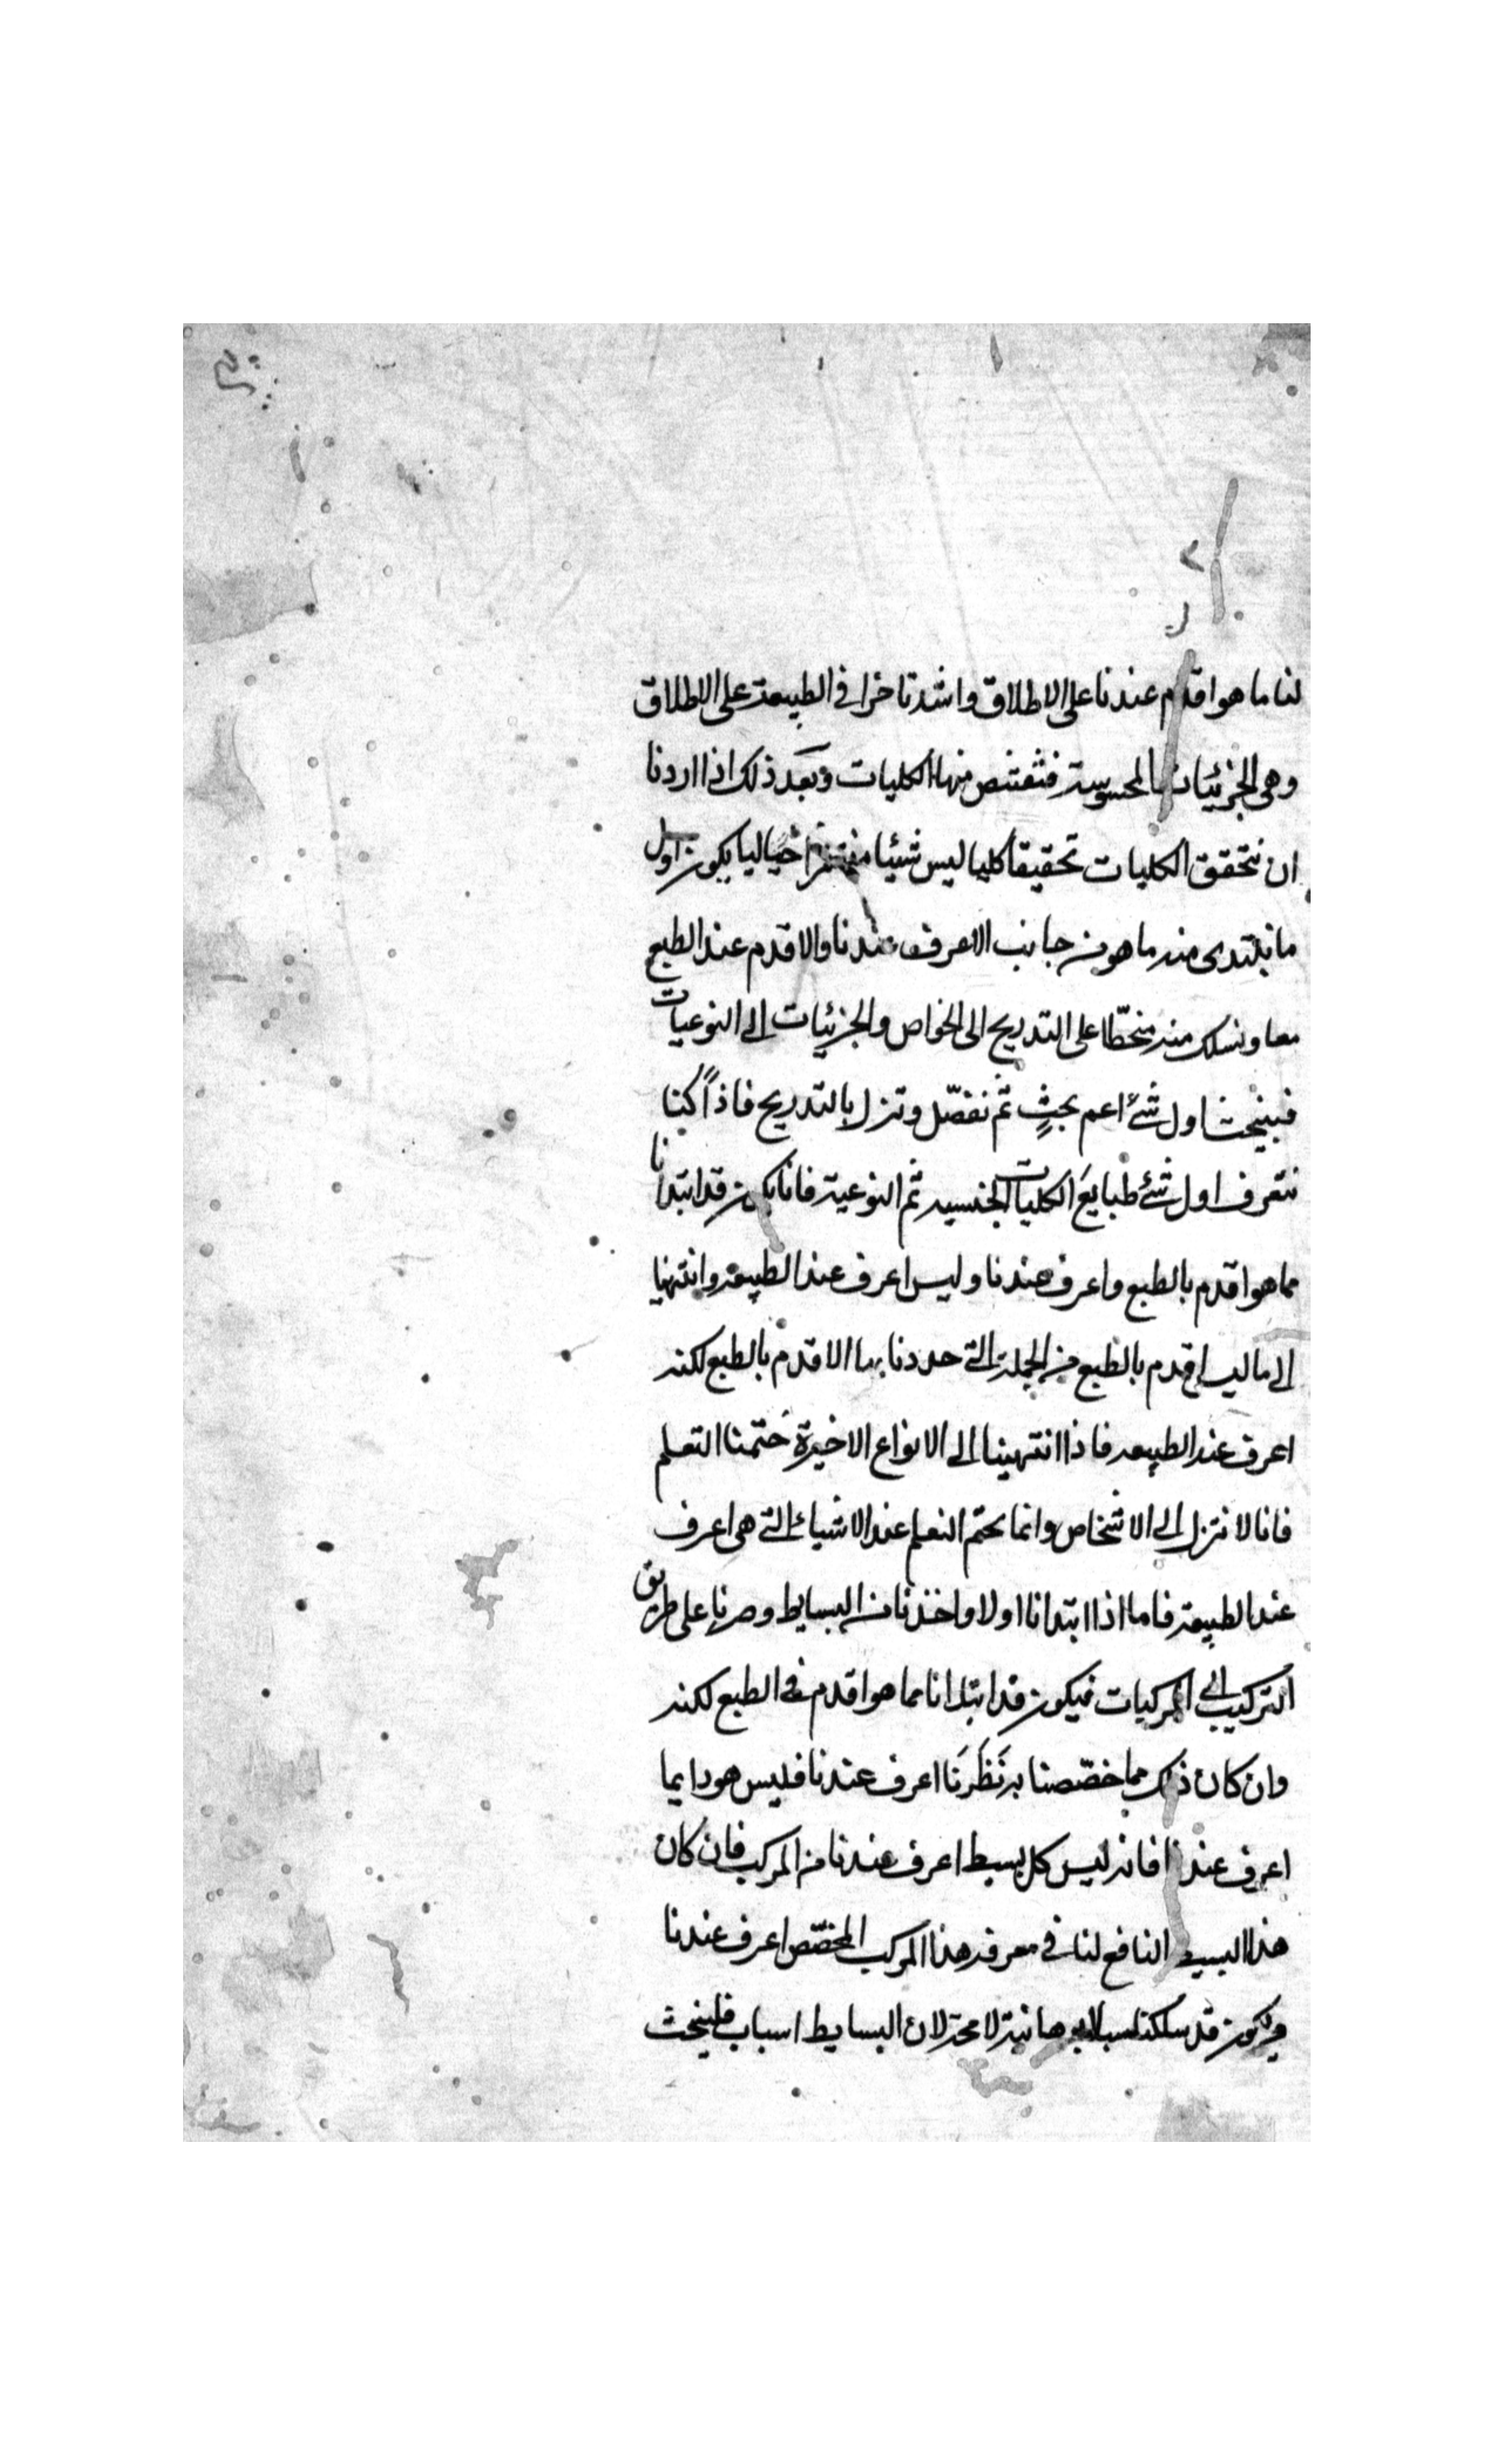 لنا ما هو اقدم عندنا على الاطلاق واشد تاخرا فى الطبيعة على الاطلاق
وهى الجزئيات المحسوسة فنقتنص منها الكليات وبَعد ذلك اذا اردنا
ان نتحقق الكليات تحقيقا كليا ليس شيئا خياليا يكون اول
ما نبتدى منه ما هو من جانب الاعرف عندنا والاقدم عند الطبع
معا ونسلك منه منحطّا على التدريج الى الخواص والجزئيات الى النوعيات
اول شئ اعم بحثٍ ثم نفصّل وننزل بالتدريج فاذاً كنا
نتعرف اول شئ طبايعَ الكليات الجنسية ثم النوعية فانا نكون قد ابتدانا
مما هو اقدم بالطبع واعرف عندنا وليس اعرف عند الطبيعة وانتهينا
الى ما ليس اقدم بالطبع من الجملة التى حددنا بها الاقدم بالطبع لكنه
اعرف عند الطبيعة فاذا انتهينا الى الانواع الاخيرة ختمنا التعلم
فانا لا ننزل الى الاشخاص وانما يختم التعلم عند الاشياء التى هى اعرف
عند الطبيعة فاما اذا ابتدانا اولا واخذنا من البسايط وصرنا على طريق
التركيب الى المركبات فيكون قد ابتدانا مما هو اقدم فى الطبع لكنه
وان كان ذلك مما خصّصنا به نَظَرَنَا اعرف عندنا فليس هو دايما
اعرف عندنا فانه ليس كل بسيط اعرف عندنا من المركب فان كان
هذا البسيط النافع لنا فى معرفة هذا المركب المخصّص اعرف عندنا
فيكون قد سلكنا سبلا برهانية لا محة لان البسايط اسباب فلينبحث